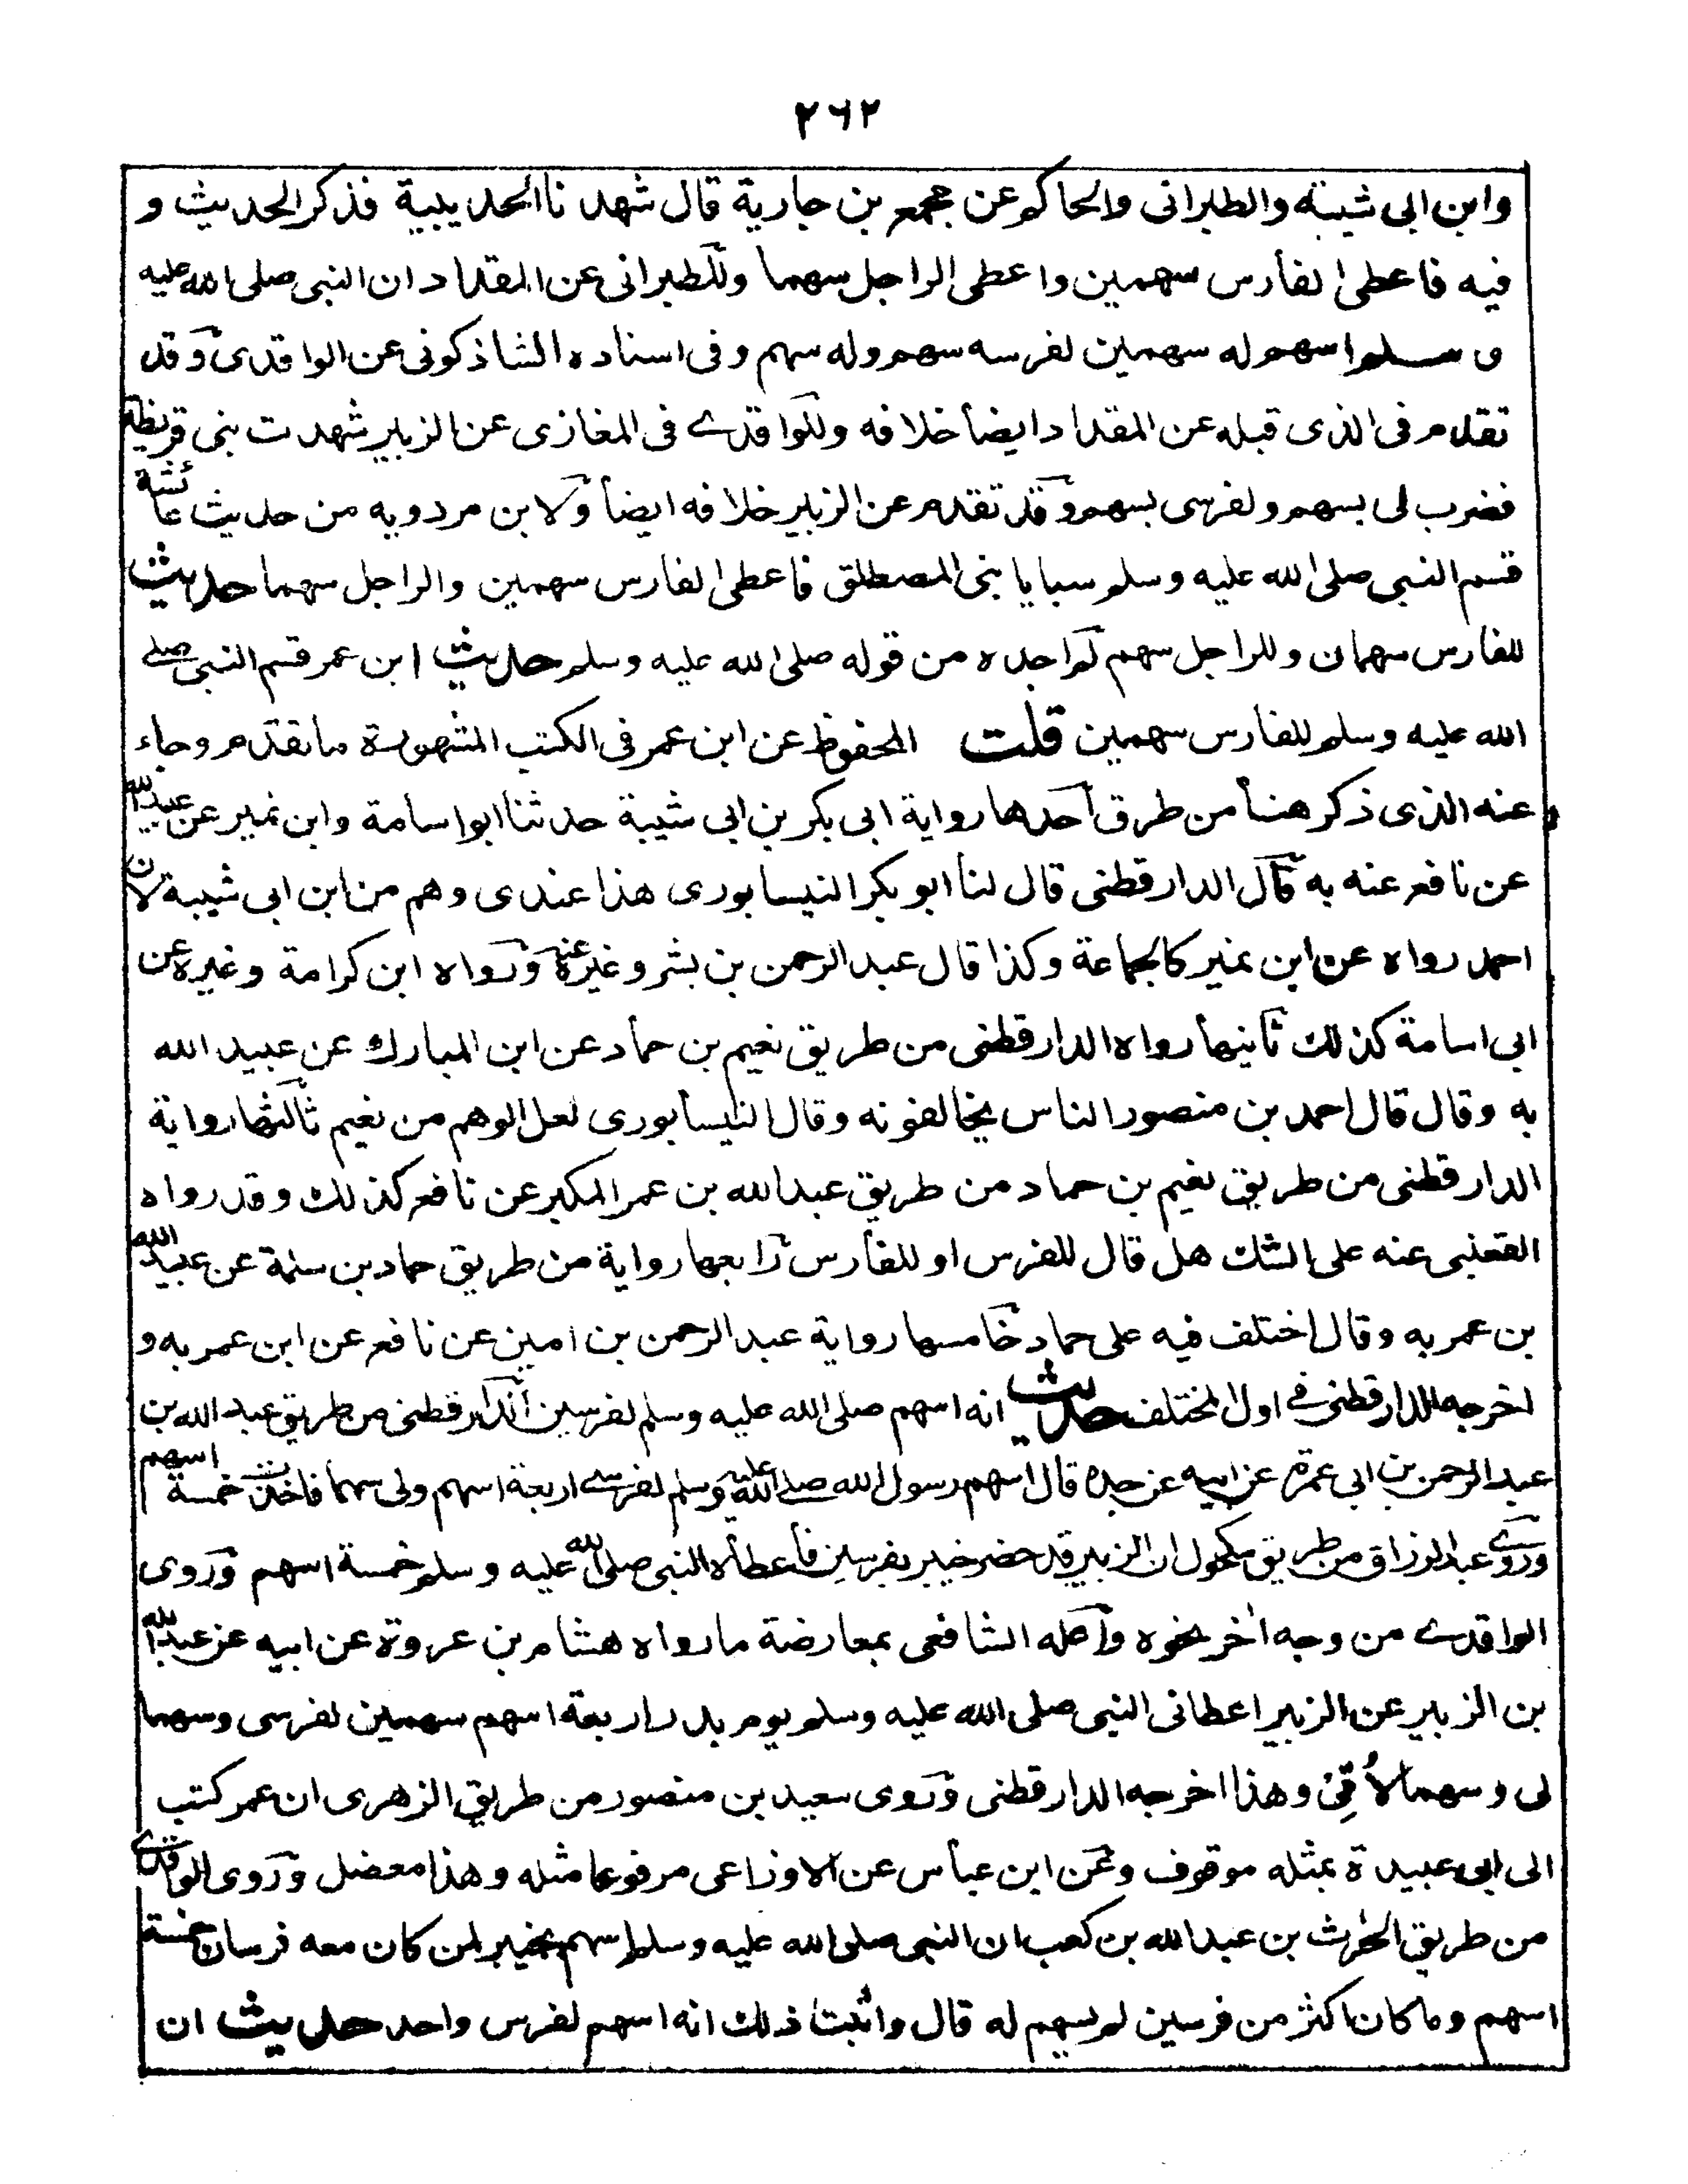 ٢٦٢
وابن ابى شيبة والطبرانى والحاكم عن مجمع بن جارية قال شهدنا الحديبية فذكر الحديث و
فيه فاعطى الفارس سهمين واعطى الراجل سهما وللطبرانى عن المقداد ان النبى صلى الله عليه
و سلم اسهم له سهمين لفرسه سهم وله سهم وفى اسناده الشاذكونى عن الواقدى وقد
تقدم فى الذى قبله عن المقداد ايضا خلافه وللواقدے فى المغازى عن الزبير شهدت بنى قريظة
فضرب لى بسهم ولفرسى بسهم وقد تقدم عن الزبير خلافه ايضا ولابن مردويه من حديث عائشة
قسم النبى صلى الله عليه وسلم سبايا بنى المصطلق فاعطى الفارس سهمين والراجل سهما حديث
للفارس سهمان وللراجل سهم لم اجده من قوله صلى الله عليه وسلم حديث ابن عمر قسم النبى صلے
الله عليه وسلم للفارس سهمين قلت المحفوظ عن ابن عمر فى الكتب المشهورة ما تقدم وجاء
عنه الذى ذكر هنا من طرق احدها رواية ابى بكر بن ابى شيبة حدثنا ابو اسامة وابن نمير عن عبيد الله
عن نافع عنه به قال الدارقطنى قال لنا ابو بكر النيسابورى هذا عندى وهم من ابن ابى شيبة لان
احمد رواه عن ابن نمير كالجماعة وكذا قال عبد الرحمن بن بشر وغيره عنه ورواه ابن كرامة وغيره عن
ابى اسامة كذلك ثانيها رواه الدارقطنى من طريق نعيم بن حماد عن ابن المبارك عن عبيد الله
به وقال قال احمد بن منصور الناس يخالفونه وقال النيسابورى لعل الوهم من نعيم ثالثها رواية
الدارقطنى من طريق نعيم بن حماد من طريق عبد الله بن عمر المكبر عن نافع كذلك وقد رواه
القعنبى عنه على الشك هل قال للفرس او للفارس رابعها رواية من طريق حماد بن سلمة عن عبيد الله
بن عمر به وقال اختلف فيه على حماد خامسها رواية عبد الرحمن بن امين عن نافع عن ابن عمر به و
اخرجه الدارقطنى فے اول المختلف حديث انه اسهم صلى الله عليه وسلم لفرسين الدارقطنى من طريق عبد الله بن
عبد الرحمن بن ابى عمرة عن ابيه عن جده قال اسهم رسول الله صلے الله عليه وسلم لفرسے اربعة اسهم ولى سهما فاخذت خمسة اسهم
وروے عبد الرزاق من طريق مكحول ان الزبير قد حضر خيبر بفرسين فاعطاه النبى صلى الله عليه وسلم خمسة اسهم وروى
الواقدے من وجه اخر نحوه واعله الشافعى بمعارضة ما رواه هشام بن عروة عن ابيه عن عبد الله
بن الزبير عن الزبير اعطانى النبى صلى الله عليه وسلم يوم بدر اربعة اسهم سهمين لفرسى وسهما
لى وسهما لامى وهذا اخرجه الدارقطنى وروى سعيد بن منصور من طريق الزهرى ان عمر كتب
الى ابى عبيدة بمثله موقوف وعن ابن عباس عن الاوزاعى مرفوعا مثله وهذا معضل وروى الواقدے
من طريق الحٰرث بن عبد الله بن كعب ان النبى صلى الله عليه وسلم اسهم بخيبر لمن كان معه فرسان خمسة
اسهم وما كان اكثر من فرسين لم يسهم له قال واثبت ذلك انه اسهم لفرس واحد حديث ان